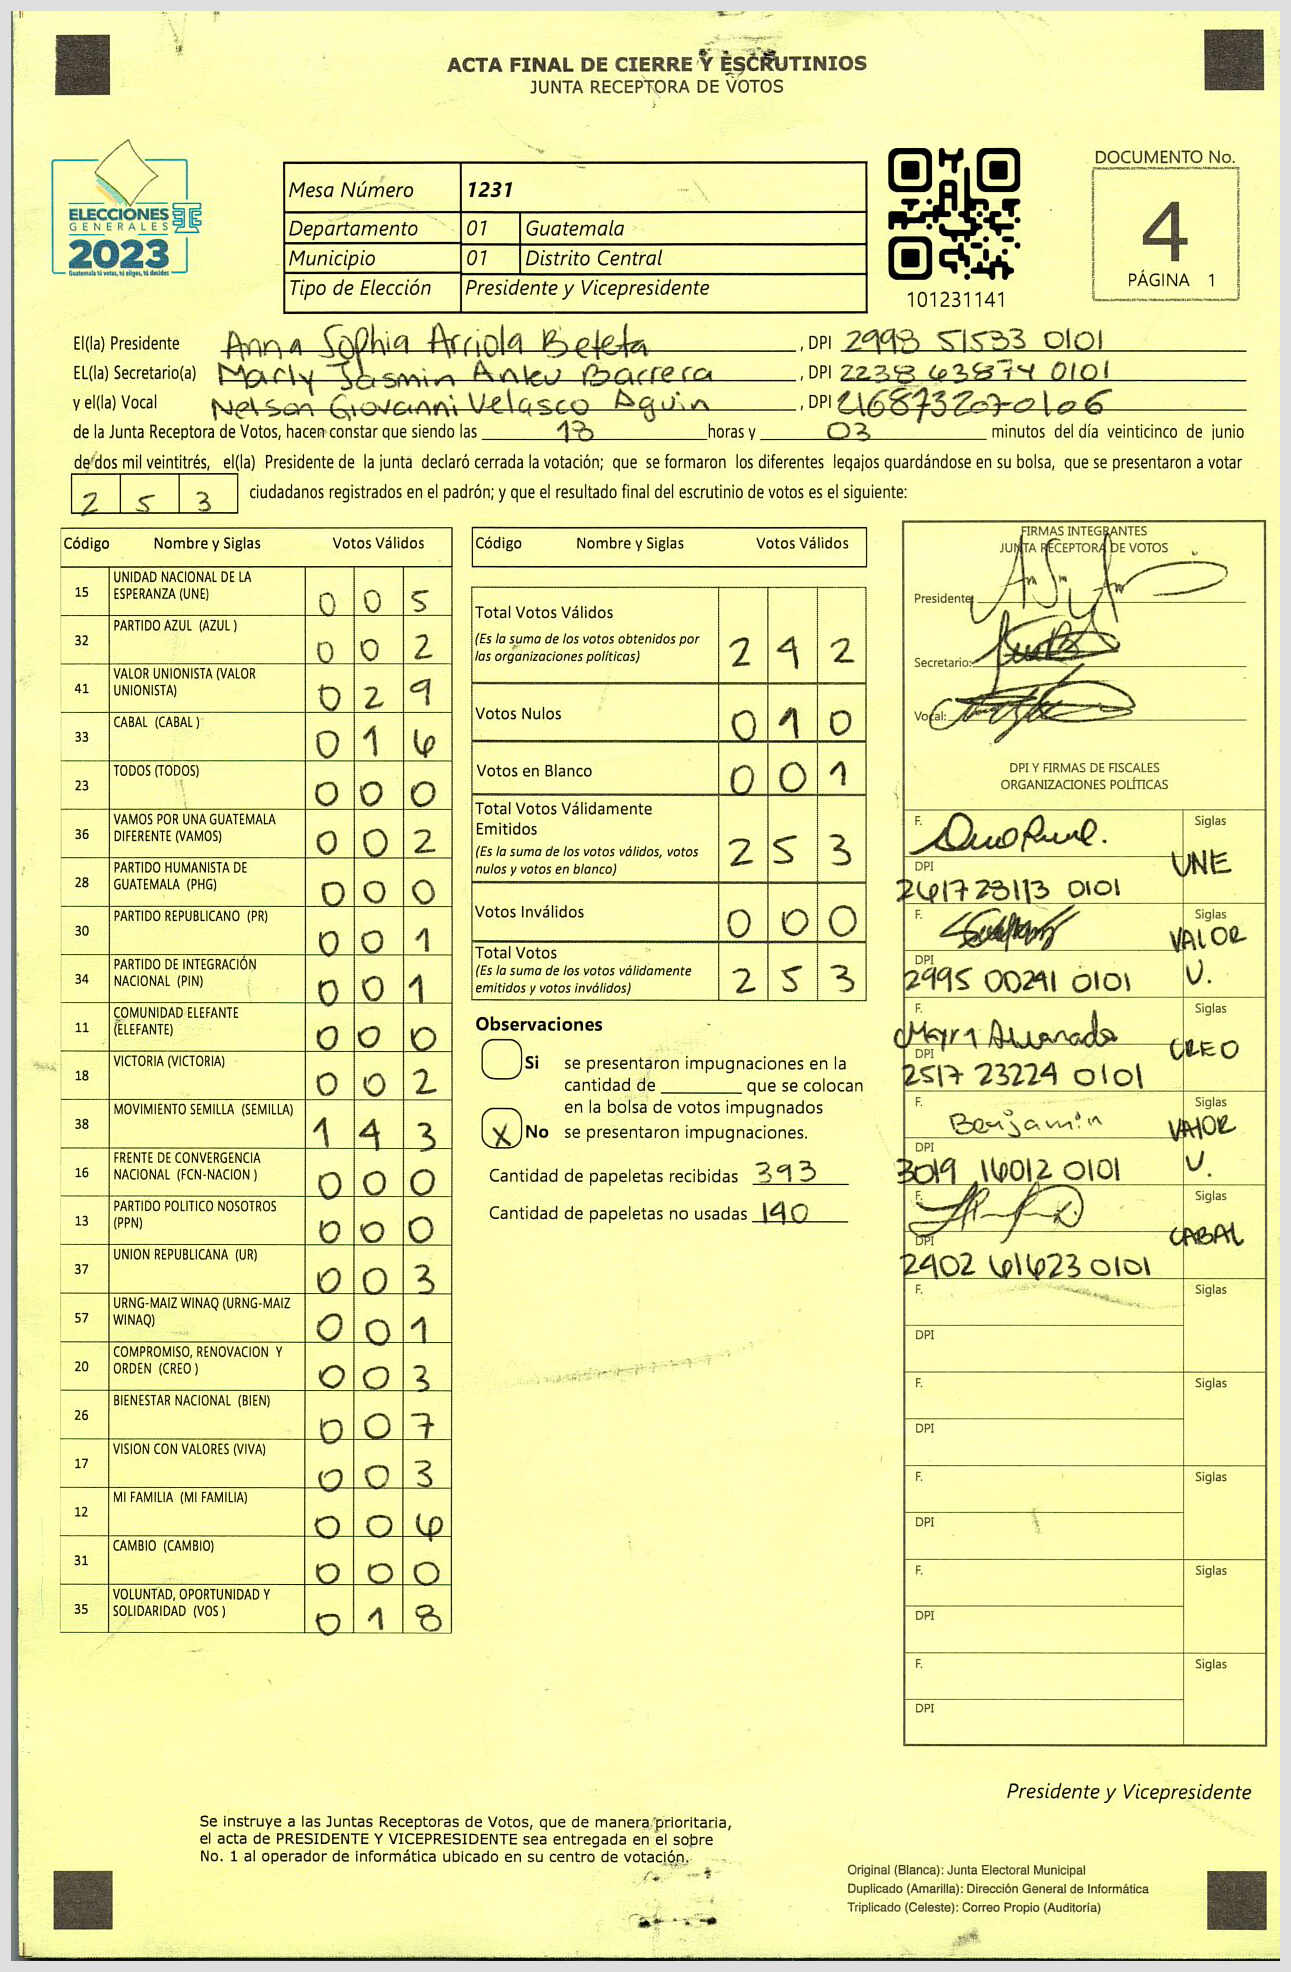 ACTA FINAL DE CIERRE Y ESCRUTINIOS
JUNTA RECEPTORA DE VOTOS
ELECCIONES
GENERALES
2023
Guatemala tú votas, tú eliges, tú decides
Mesa Número 1231
Departamento 01 Guatemala
Municipio 01 Distrito Central
Tipo de Elección Presidente y Vicepresidente
101231141
DOCUMENTO No.
4
PÁGINA 1
El(la) Presidente Anna Sophia Arriola Beteta, DPI 2993 51533 0101
EL(la) Secretario(a) Marly Jasmin Anleu Barrera, DPI 2238 63874 0101
y el(la) Vocal Nelson Giovanni Velasco Aguin, DPI 2168732070106
de la Junta Receptora de Votos, hacen constar que siendo las 18 horas y 03 minutos del día veinticinco de junio
de dos mil veintitrés, el(la) Presidente de la junta declaró cerrada la votación; que se formaron los diferentes legajos guardándose en su bolsa, que se presentaron a votar
2 5 3 ciudadanos registrados en el padrón; y que el resultado final del escrutinio de votos es el siguiente:
Código Nombre y Siglas Votos Válidos
15 UNIDAD NACIONAL DE LA ESPERANZA (UNE) 0 0 5
32 PARTIDO AZUL (AZUL ) 0 0 2
41 VALOR UNIONISTA (VALOR UNIONISTA) 0 2 9
33 CABAL (CABAL ) 0 1 6
23 TODOS (TODOS) 0 0 0
36 VAMOS POR UNA GUATEMALA DIFERENTE (VAMOS) 0 0 2
28 PARTIDO HUMANISTA DE GUATEMALA (PHG) 0 0 0
30 PARTIDO REPUBLICANO (PR) 0 0 1
34 PARTIDO DE INTEGRACIÓN NACIONAL (PIN) 0 0 1
11 COMUNIDAD ELEFANTE (ELEFANTE) 0 0 0
18 VICTORIA (VICTORIA) 0 0 2
38 MOVIMIENTO SEMILLA (SEMILLA) 1 4 3
16 FRENTE DE CONVERGENCIA NACIONAL (FCN-NACION ) 0 0 0
13 PARTIDO POLITICO NOSOTROS (PPN) 0 0 0
37 UNION REPUBLICANA (UR) 0 0 3
57 URNG-MAIZ WINAQ (URNG-MAIZ WINAQ) 0 0 1
20 COMPROMISO, RENOVACION Y ORDEN (CREO ) 0 0 3
26 BIENESTAR NACIONAL (BIEN) 0 0 7
17 VISION CON VALORES (VIVA) 0 0 3
12 MI FAMILIA (MI FAMILIA) 0 0 6
31 CAMBIO (CAMBIO) 0 0 0
35 VOLUNTAD, OPORTUNIDAD Y SOLIDARIDAD (VOS ) 0 1 8
Código Nombre y Siglas Votos Válidos
Total Votos Válidos 2 4 2
(Es la suma de los votos obtenidos por
las organizaciones políticas)
Votos Nulos 0 1 0
Votos en Blanco 0 0 1
Total Votos Válidamente
Emitidos 2 5 3
(Es la suma de los votos válidos, votos
nulos y votos en blanco)
Votos Inválidos 0 0 0
Total Votos 2 5 3
(Es la suma de los votos válidamente
emitidos y votos inválidos)
Observaciones
Si se presentaron impugnaciones en la
cantidad de ________ que se colocan
en la bolsa de votos impugnados
X No se presentaron impugnaciones.
Cantidad de papeletas recibidas 393
Cantidad de papeletas no usadas 140
FIRMAS INTEGRANTES
JUNTA RECEPTORA DE VOTOS
Presidente:
Secretario:
Vocal:
DPI Y FIRMAS DE FISCALES
ORGANIZACIONES POLÍTICAS
F. Siglas UNE
DPI 2617 23113 0101
F. Siglas VALOR U.
DPI 2995 00241 0101
F. Mayra Alvarado Siglas CREO
DPI 2517 23224 0101
F. Benjamin Siglas VALOR U.
DPI 3019 16012 0101
F. Siglas CABAL
DPI 2402 61623 0101
F. Siglas
DPI
F. Siglas
DPI
F. Siglas
DPI
F. Siglas
DPI
F. Siglas
DPI
Presidente y Vicepresidente
Se instruye a las Juntas Receptoras de Votos, que de manera prioritaria,
el acta de PRESIDENTE Y VICEPRESIDENTE sea entregada en el sobre
No. 1 al operador de informática ubicado en su centro de votación.
Original (Blanca): Junta Electoral Municipal
Duplicado (Amarilla): Dirección General de Informática
Triplicado (Celeste): Correo Propio (Auditoría)